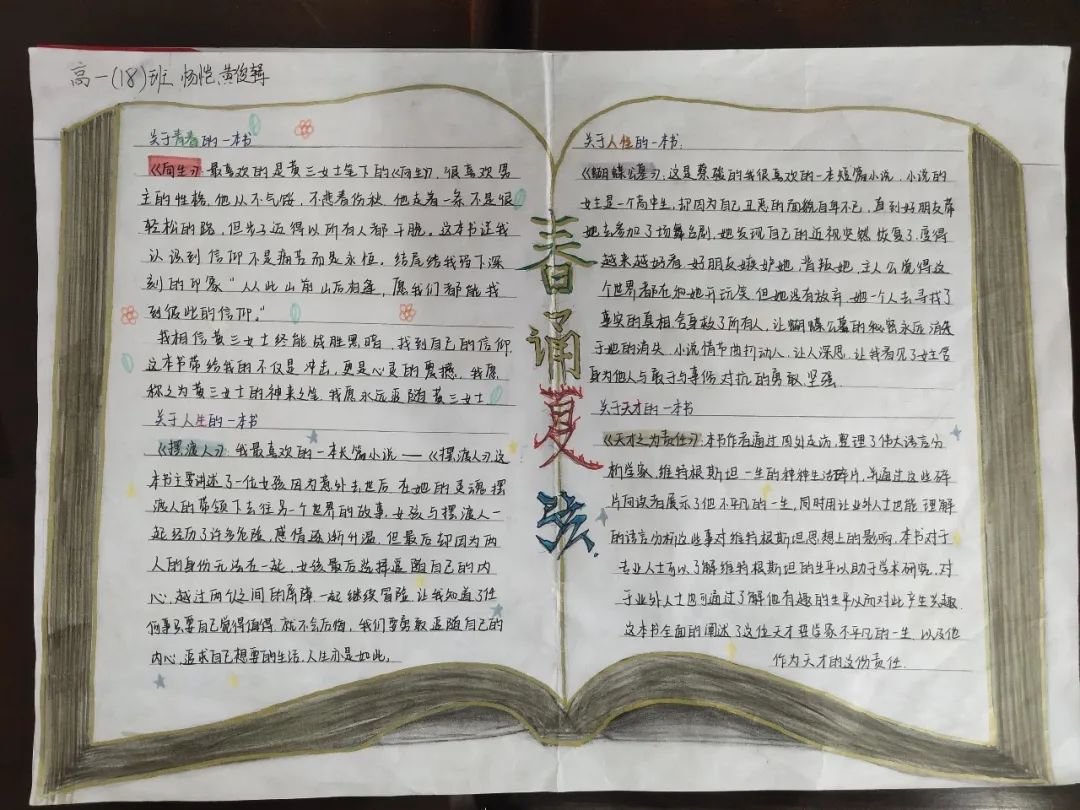 高一(18)班 杨恺、黄俊辑
关于青春的一本书
《向生》: 最喜欢的是黄三女士笔下的《向生》, 很喜欢男
主的性格, 他从不气馁, 不悲春伤秋, 他走着一条不是很
轻松的路, 但步子迈得比所有人都干脆。这本书让我
认识到信仰不是痛苦而是永恒, 结尾给我留下深
刻的印象"从此山前山后有逢, 愿我们都能找
到彼此的信仰。"
我相信黄三女士终能战胜黑暗, 找到自己的信仰
这本书带给我的不仅是冲击, 更是心灵的震撼, 我愿
称之为黄三女士的神来之笔, 我愿永远追随黄三女士
关于人生的一本书
《摆渡人》: 我最喜欢的一本长篇小说——《摆渡人》这
本书主要讲述了一位女孩因为意外去世后 在她的灵魂摆
渡人的带领下去往另一个世界的故事, 女孩与摆渡人一
起经历了许多危险, 感情逐渐升温, 但最后却因为两
人的身份无法在一起, 女孩最后选择追随自己的内
心, 越过两个之间的屏障一起继续冒险, 让我知道了任
何事只要自己觉得值得, 就不会后悔, 我们要勇敢追随自己的
内心, 追求自己想要的生活, 人生亦是如此。
春
诵
夏
弦
关于人性的一本书
《蝴蝶公墓》: 这是蔡骏的我很喜欢的一本短篇小说, 小说的
女主是一个高中生, 却因为自己丑恶的面貌自卑不已, 直到好朋友带
她去参加了场舞台剧, 她发现自己的近视突然恢复了, 变得
越来越好看, 好朋友嫉妒她, 背叛她, 主人公觉得这
个世界都在和她开玩笑, 但她没有放弃, 她一个人去寻找了
事实的真相, 舍身救了所有人, 让蝴蝶公墓的秘密永远消失
于她的消失, 小说情节曲折动人, 让人深思, 让我看见了女主舍
身为他人与敢于与事伤对抗的勇敢、坚强.
关于天才的一本书
《天才之为责任》: 本书作者通过四处走访, 整理了伟大语言分
析学家, 维特根斯坦一生的种种生活碎片, 并通过这些碎
片向读者展示了他不平凡的一生, 同时用让业外人士也能理解
的语言分析这些事对维特根斯坦思想上的影响, 本书对于
专业人士可以了解维特根斯坦的生平以助于学术研究, 对
于业外人士也可通过了解他有趣的生平以而对此产生兴趣.
这本书全面的阐述了这位天才哲学家不平凡的一生, 以及他
作为天才的这份责任.